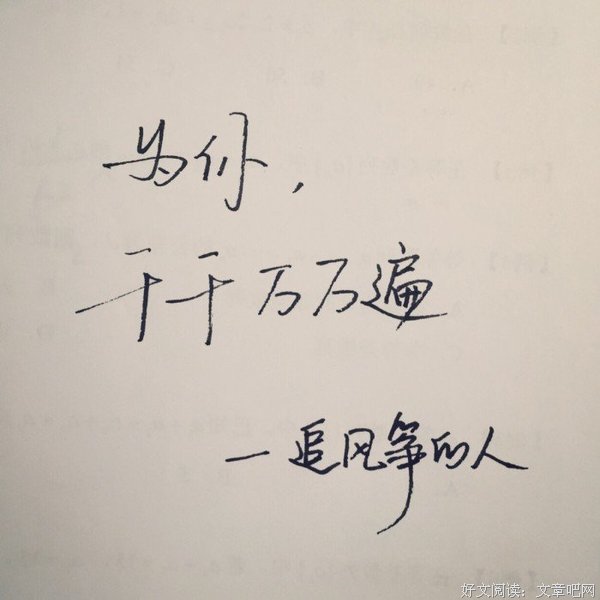 为你，
千千万万遍
一追风筝的人
好文阅读：文章吧网